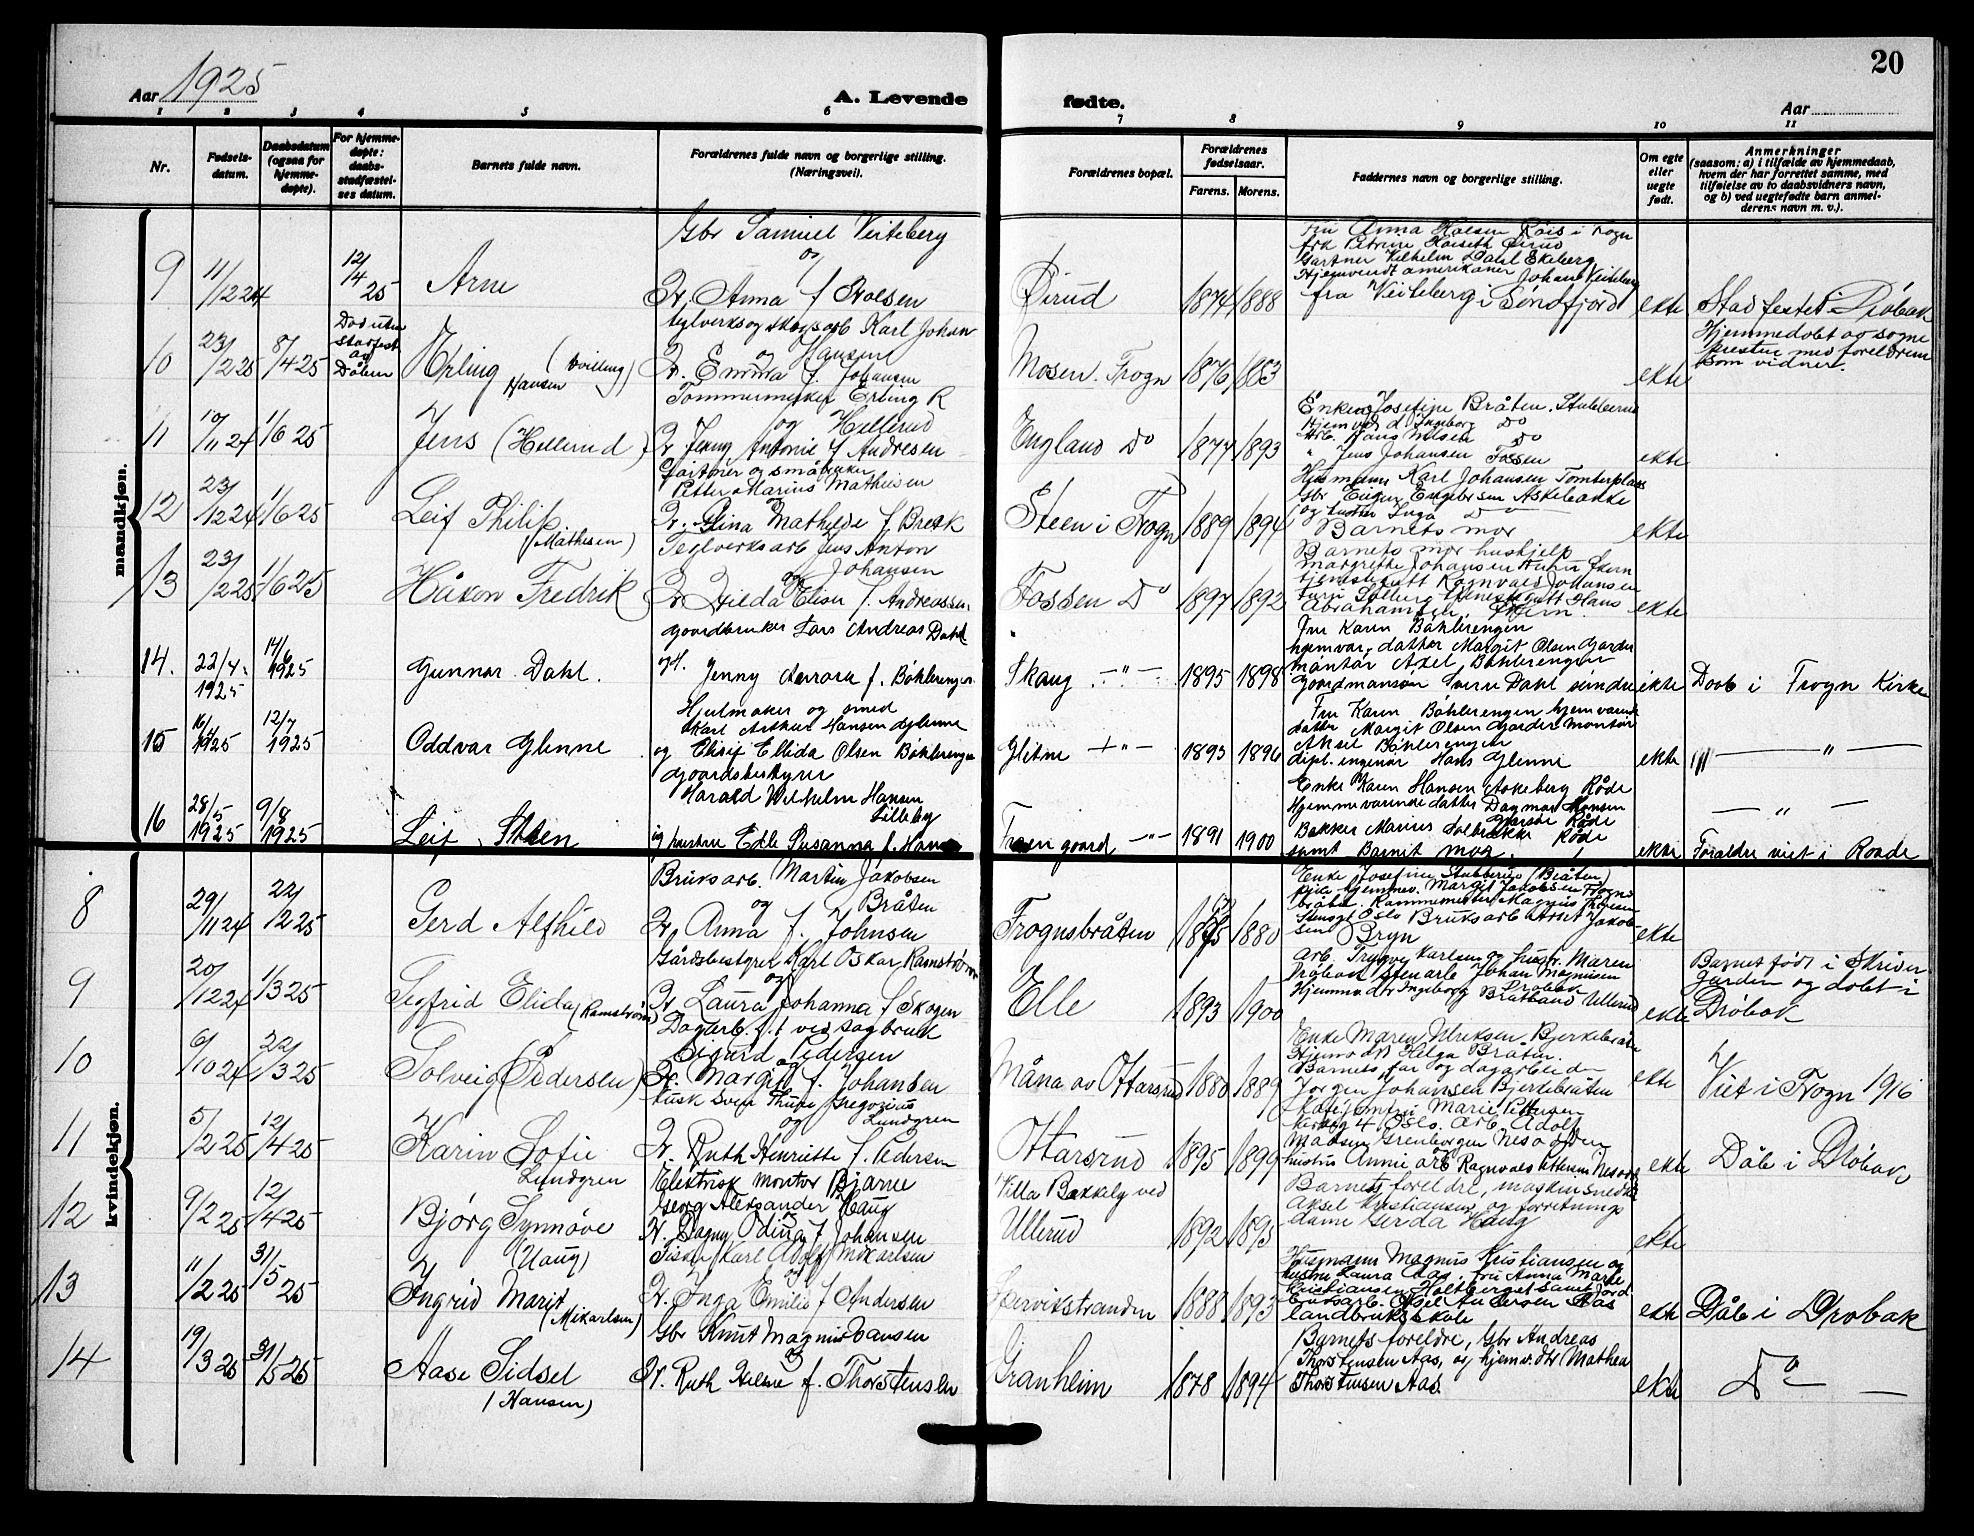 20
Aar 1925
A. Levende
fødte.
Aar
1 2 3 4 5 6 7 8 9 10 11
Nr.
Fødsels-
datum.
Daabsdatum
(ogsaa for
hjemme-
døpte).
For hjemme-
døpte:
daabs-
stadfæstel-
ses datum.
Barnets fulde navn.
Forældrenes fulde navn og borgerlige stilling.
(Næringsvei).
Forældrenes bopæl.
Forældrenes
fødselsaar.
Farens. Morens.
Faddernes navn og borgerlige stilling.
Om egte
eller
uegte
født.
Anmerkninger
(saasom: a) i tilfælde av hjemmedaab,
hvem der har forrettet samme, med
tilføielse av to daabsvidners navn,
og b) ved uegtefødte barn anmel-
derens navn m. v.).
mandkjøn.
9 11/12 24 12/14 25 Arne
Gbr Samuel Veiteberg
og
Hr. Anna f. Holsen
Ørud 1874 1888
Gartner Vilhelm Dahl Ekeberg
Hjemvendt amerikaner Johan Veiteberg
fra Veiteberg i Søndfjord
ekte
Stadfestet i Drøbak
10 23/2 25 8/4 25
Død uten
stadfest
av
Dåben
Erling (tvilling)
Hansen
Teglverks og skogsarb Karl Johan
og Hansen
Hr. Emma f. Johansen
Mosen. Frogn 1876 1883
ekte
Hjemmedøbt av sogne
presten med foreldrene
som vidner.
11 10/11 24 1/6 25 Jens (Hellerud)
Tømmermester Erling R
og Hellerud
Hr Jenny Antonie f Andresen
England Do 1877 1893
Enken Josefine Bråten. Stubberud
Hjemv d Ingeborg Do
Arb. Hans Nilsen Do
" Jens Johansen Fossen
ekte
12 23/12 24 1/6 25 Leif Philip
(Mathisen)
Gartner og småbruker
Petter Marius Mathisen
og
Hr. Elina Mathilde f. Brek
Steen i Frogn 1889 1894
Husmann Karl Johansen Tomterplass
Gbr Einar Engebresen Askebakke
og hustru Inga Do
Barnets mor
ekte
13 23/2 25 1/6 25 Håkon Fredrik
Teglverksarb Jens Anton
og Johansen
Hr Hilda Elise f. Andreassen
Fossen Do 1897 1892
Barnets mor hushjelp
Margrethe Johansen
tjenestegutt Ragnvald Johansen
tjenestegutt Hans
Abrahamsen
ekte
14. 22/4. 1925 14/6 1925 Gunnar Dahl.
Gaardbruker Lars Andreas Dahl
og H. Jenny Aurora f. Båhlerengen
Skaug -"- 1895 1898
Fru Karen Båhlerengen
hjemvær. datter Margit Olsen Garder
montør Axel Båhlerengen
gaardmannsøn Sverre Dahl søndre
ekte
Døbt i Frogn Kirke
15 16/4 1925 12/7 1925 Oddvar Glenne
Hjulmaker og smed
Karl Arthur Hansen Glenne
og Elisif Ellida Olsen Båhlerengen
Glitne -"- 1893 1896
Fru Karen Båhlerengen hjemværende
datter Margit Olsen Garder montør
Aksel Båhlerengen
dipl. ingeniør Hans Glenne
ekte
"
16 28/5 1925 9/8 1925 Leif Steen
Gaardsbestyrer
Harald Wilhelm Hansen
Lilleby
og hustru Edle Susanna f. Hansen
Froen gaard -"- 1891 1900
Enke Karen Hansen Askeberg Råde
Hjemmeværende datter Dagmar Hansen
Bakker Marius Solbrække Råde
samt Barnets mor.
ekte
— " —
Forældre viet i Raade
kvindekjøn.
8 29/11 24 22/12 25 Gerd Alfhild
Bruksarb. Martin Jakobsen
og Bråten
Hr. Anna f. Johnsen
Frognsbråten 1878 1880
Enke Josefine Stubberud (Bråten)
hjemmev. Margit Jakobsen Frogns
bråten.
Oslo Bruksarb Arnt Jakob
sen Bryn
ekte
9 20/12 24 1/3 25 Segfrid Elida (Ramstrøm)
Gårdsbestyrer Karl Oskar Ramstrøm
og
Hr Laura Johanna f Skogen
Elle 1893 1900
Arb. Trygve Karlsen og hustr. Maren
Drøbak Stenarb Johan Magnusen
Drøbak
Hjemmev dtr Ingeborg Bråtland Ullerud
ekte
Barnet født i Skriver
gården og døbt i
Drøbak
10 6/10 24 22/3 25 Solveig (Pedersen)
Dagarb. f. t ved sagbruk
Sigurd Pedersen
og
Hr. Margit f. Johansen
Måna av Ottarsrud 1880 1889
Enke Maren Ulriksen Bjerkebråten
Hjemv dtr Helga Bråten.
Barnets far og dagarbeider
Jørgen Johansen Bjerkebråten
ekte
Viet i Frogn 1916
11 5/2 25 12/4 25 Karin Sofie
Lundgren
Lundgren
og
Hr. Ruth Henriette f. Pedersen
Ottarsrud 1895 1899
Marie Pettersen
4 Oslo. Arb. Adolf
Madsen Grenborgen Nesodden
hustru Annie, arb Ragnvald Pettersen Nesodd
ekte
Døbt i Drøbak
12 9/2 25 12/4 25 Bjørg Synnøve
(Haug)
Elektrisk montør Bjarne
Georg Aleksander Haug
Hr. Dagny Odina f Johansen
Villa Bakkely ved
Ullerud 1892 1893
Barnets foreldre, maskinsnedker
Aksel Kristiansen og forretnings
dame Gerda Haug
ekte
13 11/2 25 31/5 25 Ingrid Marit
(Mikarlsen)
Fisker Karl Adolf Mikarlsen
og
Hr. Inga Emilie f Andersen
Skiervikstranden 1888 1893
Husmann Magnus Kristiansen og
hustru Laura Aas, fru Anna Marie
Kristiansen Holtberget samt jord
bruksarb. Aksel Andersen Aas
landbruksskole
ekte
Døbt i Drøbak
14 19/3 25 31/5 25 Aase Sidsel
(Hansen)
Gbr Knut Magnus Hansen
og
Hr. Ruth Helene f. Thorstensen
Granheim 1878 1894
Barnets foreldre, Gbr Andreas
Thorstensen Aas, og hjemv. dtr Mathea
Thorstensen Aas
ekte
Do —